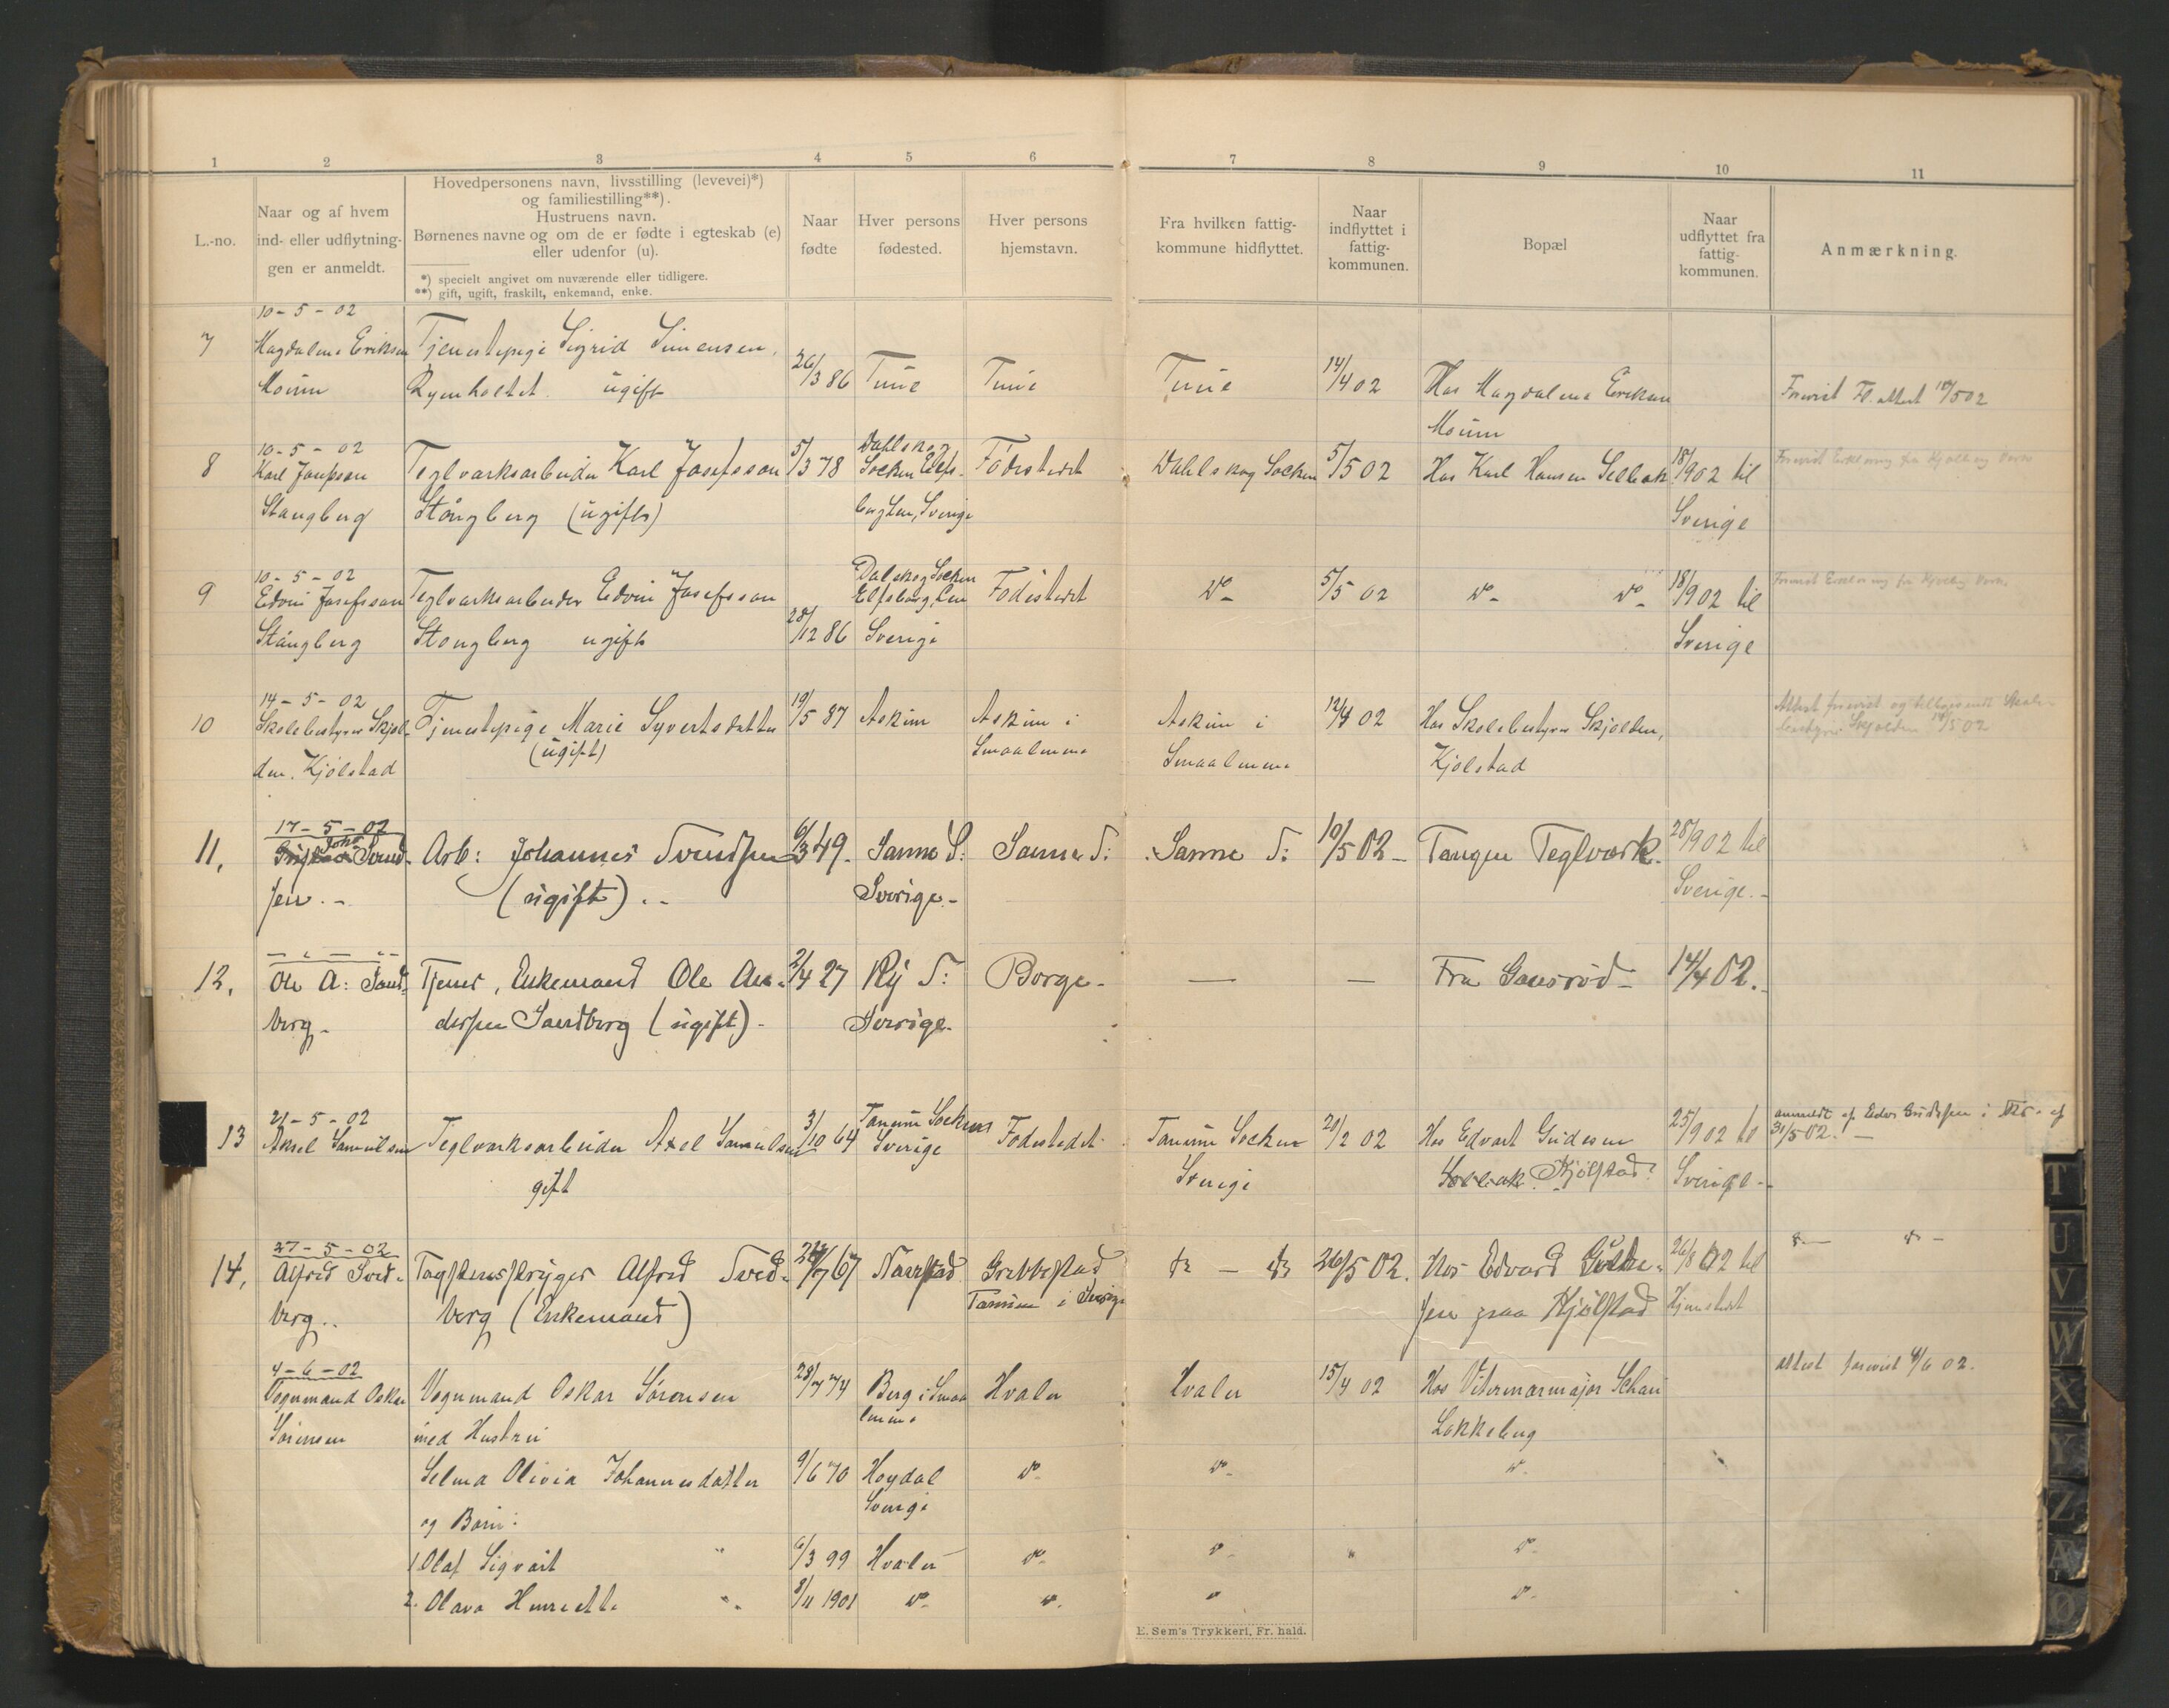 1 2 3 4 5 6 7 8 9 10 11
L.-no.
Naar og af hvem
ind- eller udflytnin-
gen er anmeldt.
Hovedpersonens navn, livsstilling (levevei)*)
og familiestilling**).
Hustruens navn.
Børnenes navne og om de er fødte i egteskab (e)
eller udenfor (u).
*) specielt angivet om nuværende eller tidligere.
**) gift, ugift, fraskilt, enkemand, enke.
Naar
fødte
Hver persons
fødested.
Hver persons
hjemstavn.
Fra hvilken fattig-
kommune hidflyttet.
Naar
indflyttet i
fattig-
kommunen.
Bopæl
Naar
udflyttet fra
fattig-
kommunen.
Anmærkning.
10-5-02
7 Magdalene Eriksen Tjenestepige Sigrid Simensen,
Moum ugift 26/3 86 Tune Tune Tune 14/4 02 Hos Magdalene Eriksen Forevist Fl. attest 10/5 02
Moum
10-5-02 Dahlskog
8 Karl Josefsson Teglværksarbeider Karl Josefsson 5/3 78 Socken Elfs- Fødestedet Dahlskog Socken 5/5 02 Hos Karl Hansen Selbak 18/9 02 til
Stangberg Stångberg (ugift) borg Len, Sverige Sverige
10-5-02 Dalskog Socken
9 Edvin Josefsson Teglværksarbeider Edvin Josefsson Elfsborg Len Fødestedet do 5/5 02 do do 18/9 02 til
Stångberg Stongberg ugift 28/12 86 Sverige Sverige
14-5-02
10 Skolebestyrer Skjol- Tjenestepige Marie Syvertsdatter 19/5 87 Askim Askim i Askim i 12/4 02 Hos Skolebestyrer Skjolden, Attest forevist og tilbagesendt Skole-
den. Kjølstad (ugift) Smaalenene Smaalenene Kjølstad bestyrer Skjolden 14/5 02
17-5-02
11. Johs Svend- Arb: Johannes Svendsen 6/3 49. Sanne S: Sanne S: Sanne S: 10/5 02 Tangen Teglværk. 28/9 02 til
sen. (ugift). Sverige. Sverige.
12. Ole A: Sand- Tjener, Enkemand Ole An- 2/4 27 Ry S: Borge - — — Fra Gansrød 14/4 02.
berg dersen Sandberg (ugift) Sverige.
21-5-02 Tanum Socken
13 Aksel Samuelsen Teglværksarbeider Axel Samuelsen 3/10 64 Sverige Fødestedet Tanum Socken 20/2 02 Hos Edvart Gudesen 25/9 02 til anmeldt af
gift Sverige Selbak. Kjølstad Sverige 31/5 02.
27-5-02
14. Alfred Sved- Tagstensstryger Alfred Sved- 67 Naverstad Grebbestad do - do 26/5 02. Hos Edvard Gude- 26/8 02 til do do
berg. berg (Enkemand) Tanum i Sverige sen paa Kjølstad Hjemstedet
4-6-02
Vognmand Oskar Vognmand Oskar Sørensen 28/7 74 Berg i Smaa Hvaler Hvaler 15/4 02 Hos Schau attest forevist 4/6 02.
Sørensen med Hustru lenene Lokkeberg
Selma Olivia Johannesdatter 9/6 70 Høydal do do do
og Børn: Sverige
1 Olaf Sigvart " 6/3 99 Hvaler do do " do
2. Olava Henriette " 8/11 1901 do do do do
E. Sem's Trykkeri, Fr. hald.
T
U
V
W
X
Y
Z
Æ
Ø